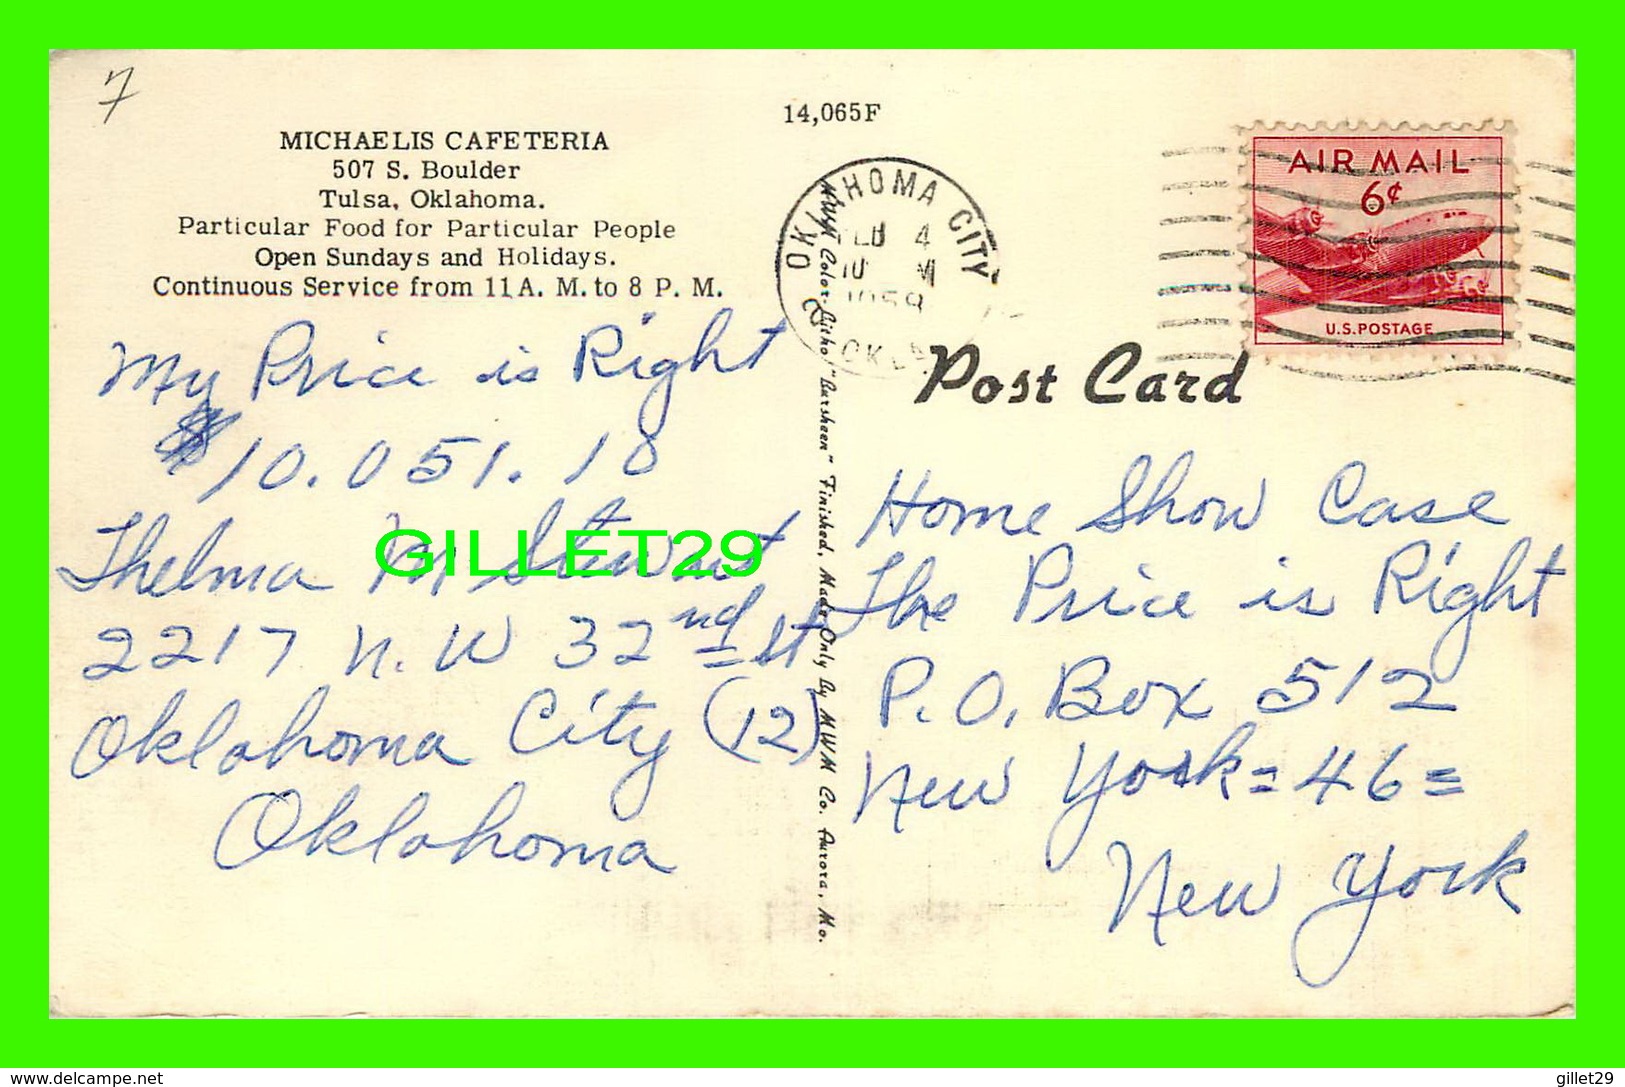 7
14,065F
MICHAELIS CAFETERIA
507 S. Boulder
Tulsa, Oklahoma.
Particular Food for Particular People
Open Sundays and Holidays.
Continuous Service from 11 A. M. to 8 P. M.
My Price is Right
$10.051.10
Thelma M Stewart
2217 N.W 32nd St
Oklahoma City (12)
Oklahoma
GILLET29
MWM Color-Litho "Dursheen" Finished, Made Only By MWM Co. Aurora, Mo.
OKLAHOMA CITY
FEB 4
1958
OKLA
AIR MAIL
6¢
U.S. POSTAGE
Post Card
Home Show Case
The Price is Right
P.O. Box 512
New York = 46 =
New York
www.delcampe.net
gillet29